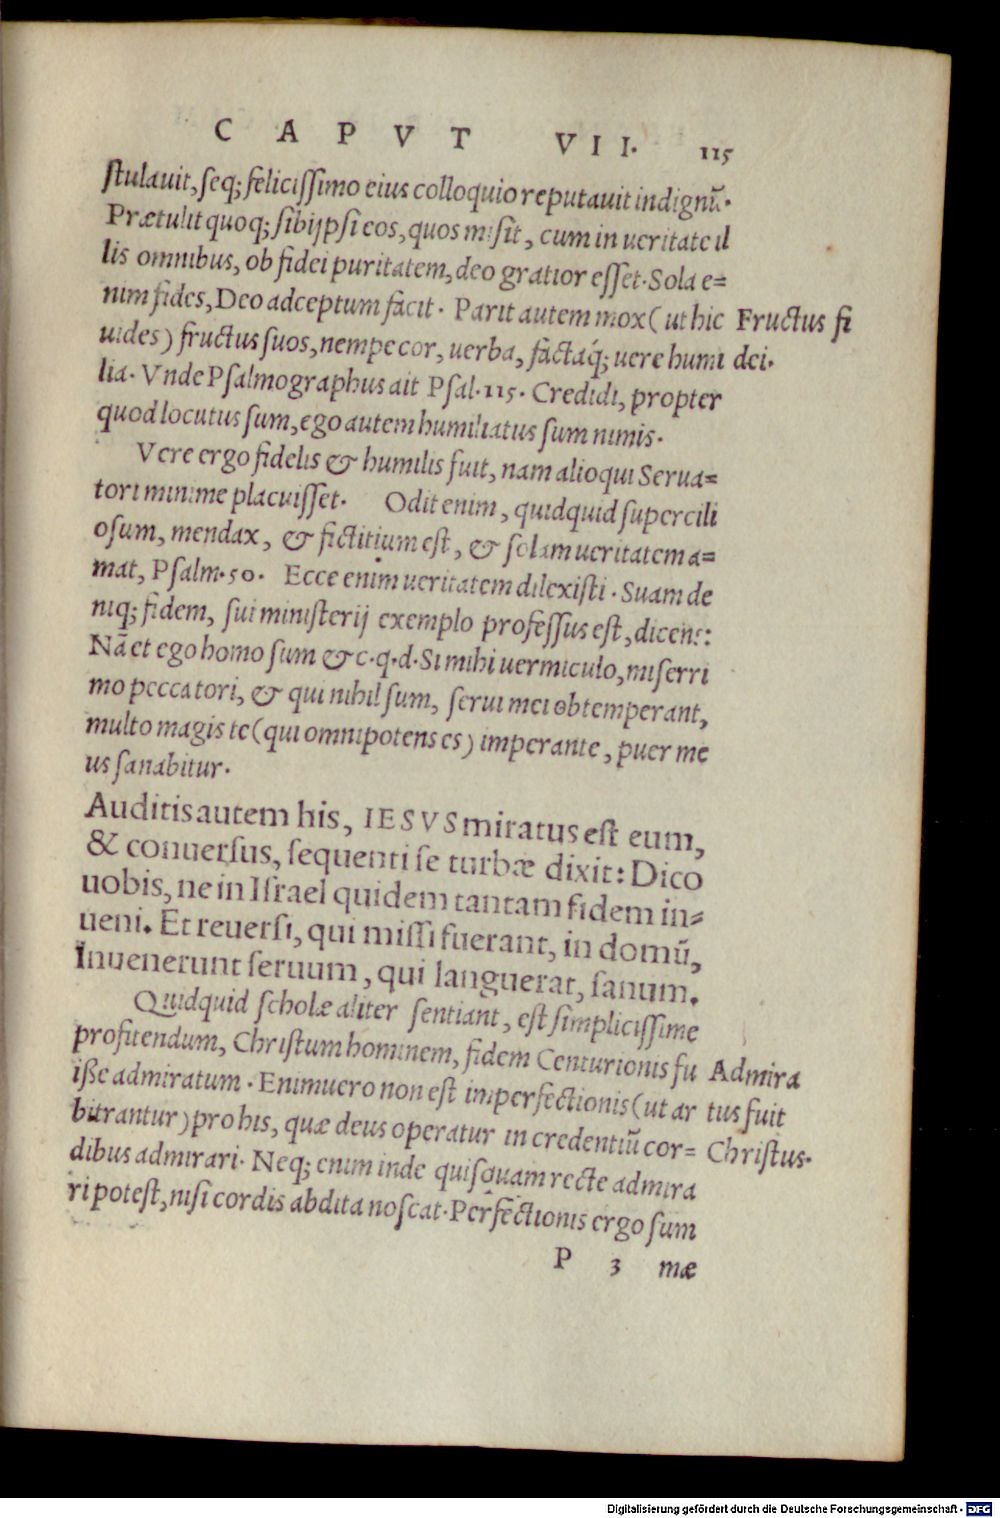 CAPVT VII. 115
ſtulauit, ſeq; feliciſſimo eius colloquio reputauit indignũ.
Prætulit quoq; ſibijpſi eos, quos miſit, cum in ueritate il
lis omnibus, ob fidei puritatem, deo gratior eſſet. Sola e=
nim fides, Deo adceptum facit. Parit autem mox (ut hic
Fructus fi
uides) fructus ſuos, nempe cor, uerba, factaq́; uere humi
dei.
lia. Vnde Pſalmographus ait Pſal. 115. Credidi, propter
quod locutus ſum, ego autem humiliatus ſum nimis.
Vere ergo fidelis & humilis fuit, nam alioqui Serua=
tori minime placuiſſet. Odit enim, quidquid ſupercili
oſum, mendax, & fictitium eſt, & ſolam ueritatem a=
mat, Pſalm. 50. Ecce enim ueritatem dilexiſti. Suam de
niq; fidem, ſui miniſterij exemplo profeſſus eſt, dicens:
Nã et ego homo ſum &c. q. d. Si mihi uermiculo, miſerri
mo peccatori, & qui nihil ſum, ſerui mei obtemperant,
multo magis te (qui omnipotens es) imperante, puer me
us ſanabitur.
Auditis autem his, IESVS miratus eſt eum,
& conuerſus, ſequenti ſe turbæ dixit: Dico
uobis, ne in Iſrael quidem tantam fidem in=
ueni. Et reuerſi, qui miſſi fuerant, in domũ,
Inuenerunt ſeruum, qui languerat, ſanum.
Quidquid ſcholæ aliter ſentiant, eſt ſimpliciſſime
profitendum, Chriſtum hominem, fidem Centurionis fu
Admira
iße admiratum. Enimuero non eſt imperfectionis (ut ar
tus fuit
bitrantur) pro his, quæ deus operatur in credentiũ cor=
Chriſtus.
dibus admirari. Neq; enim inde quiſquam recte admira
ri poteſt, niſi cordis abdita noſcat. Perfectionis ergo ſum
P 3 mæ
Digitalisierung gefördert durch die Deutsche Forschungsgemeinschaft - DFG